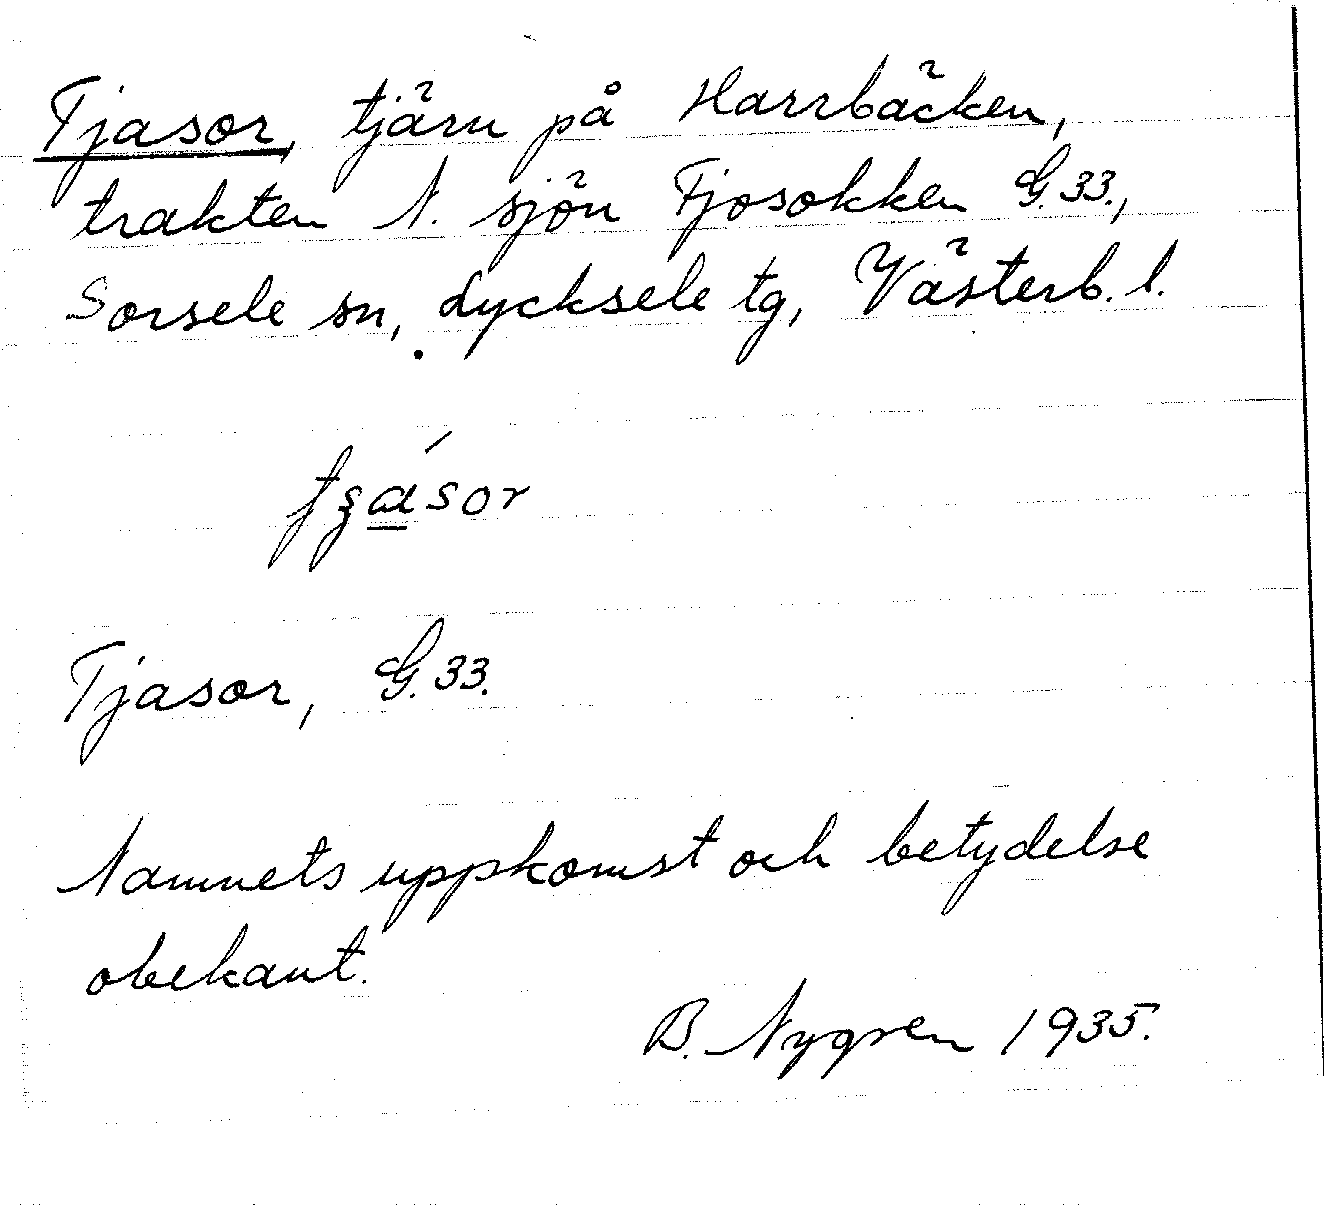 Tjasor, tjärn på Harrbäcken,
trakten N. sjön Tjosokken G.33.,
Sorsele sn, Lycksele tg, Västerb. l.
Tjasor, G.33.
Namnets uppkomst och betydelse
obekant.
B. Nygren 1935.